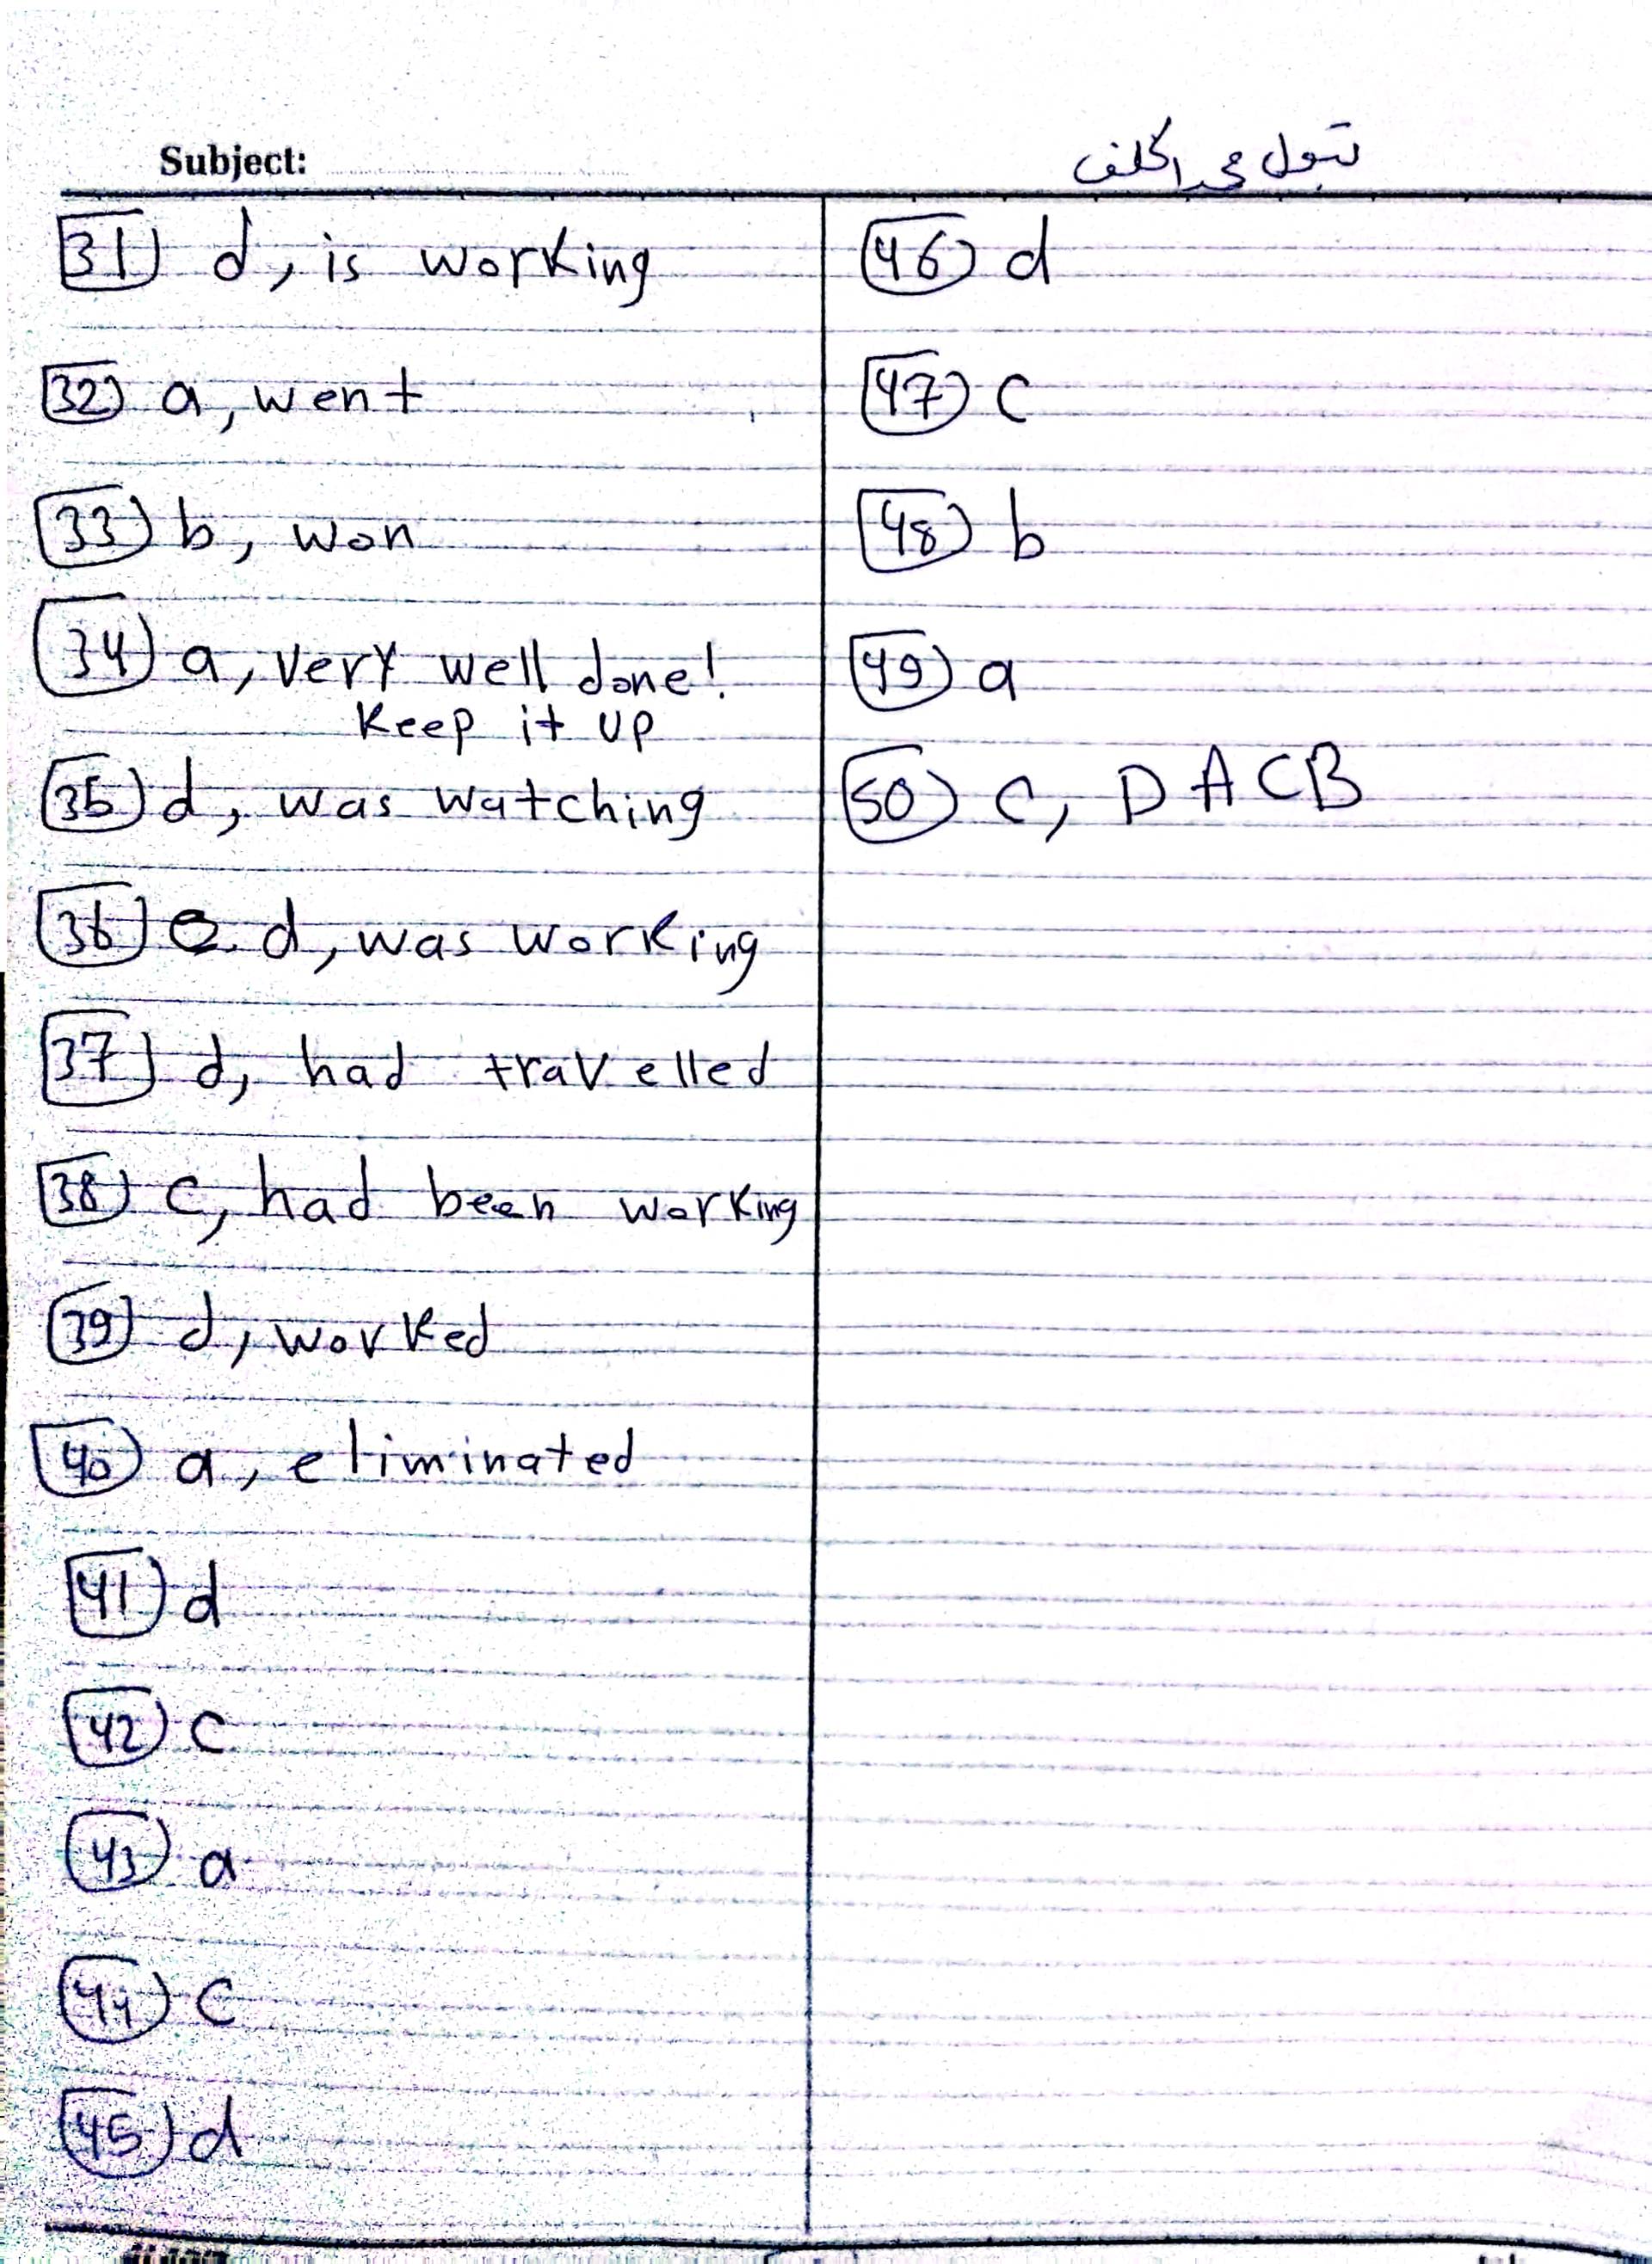 Subject:
31) d, is working
32) a, went
33) b, won
34) a, very well done!
Keep it up
35) d, was watching
36) d, was working
37) d, had travelled
38) c, had been working
39) d, worked
40) a, eliminated
41) d
42) c
43) a
44) c
45) d
46) d
47) c
48) b
49) a
50) c, DACB